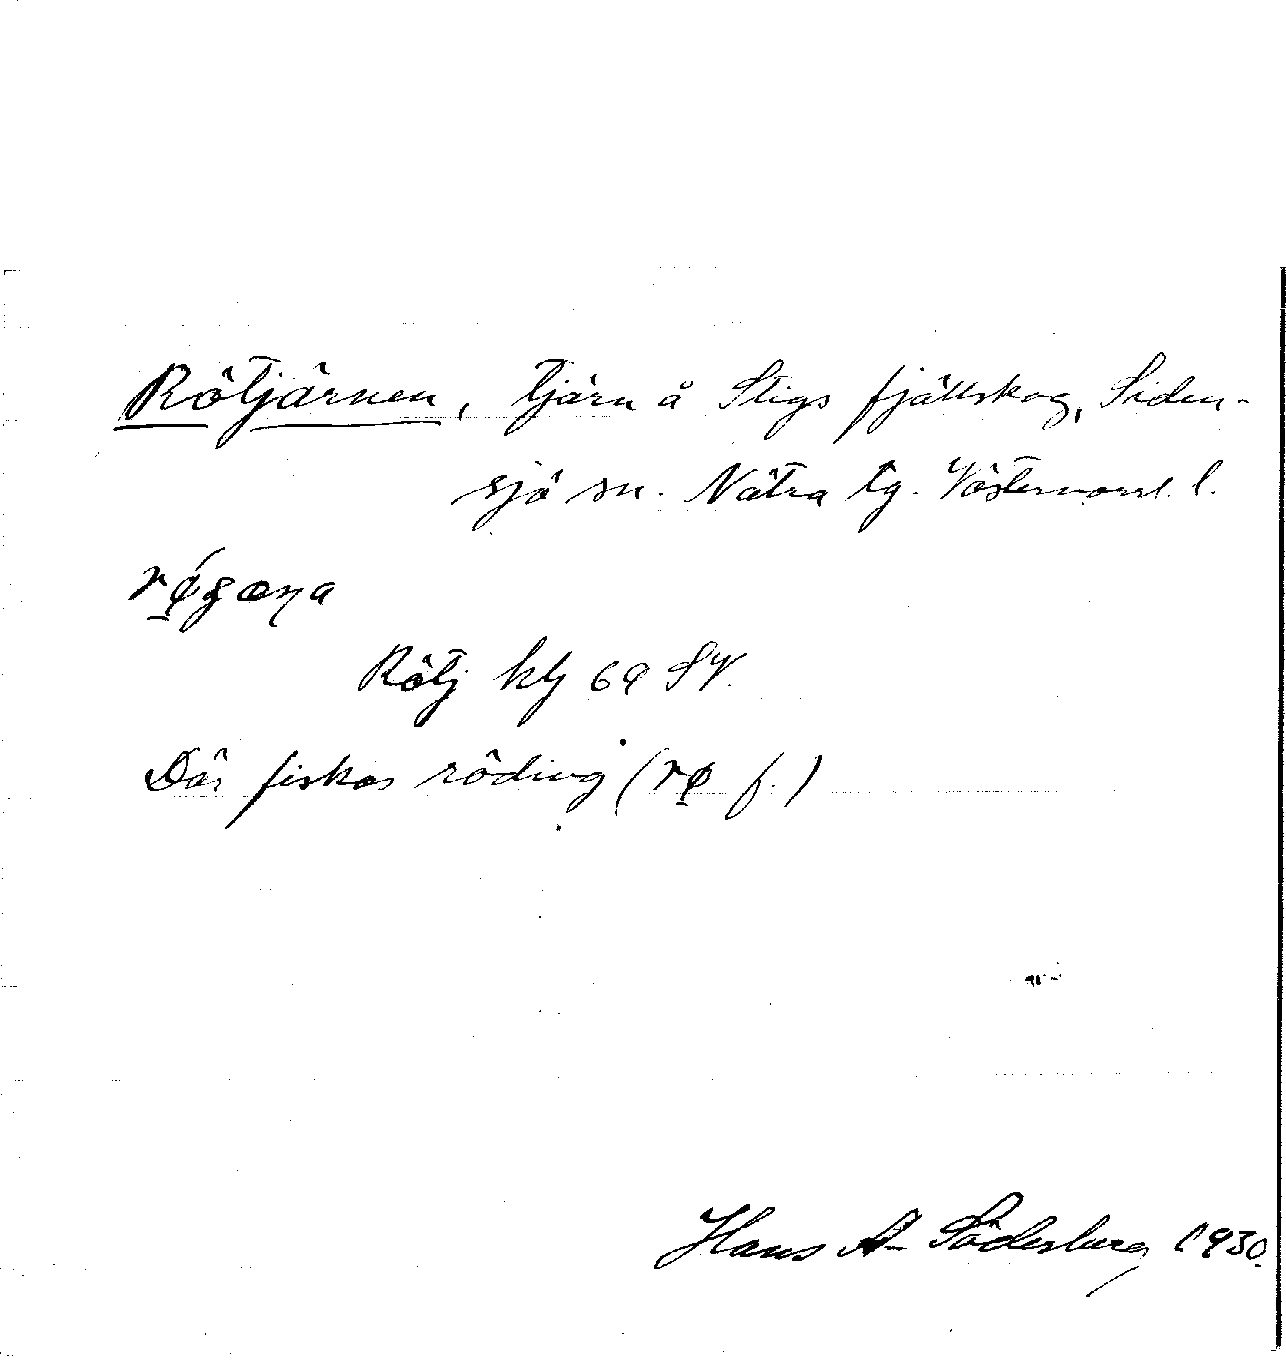 Rötjärnen, tjärn å Stigs fjällskog, Siden-
sjö sn. Nätra tg. Västernorrl. l.
Rötj kbl 69 SV.
Där fiskas röding (rø f.)
Hans A Söderberg 1930.